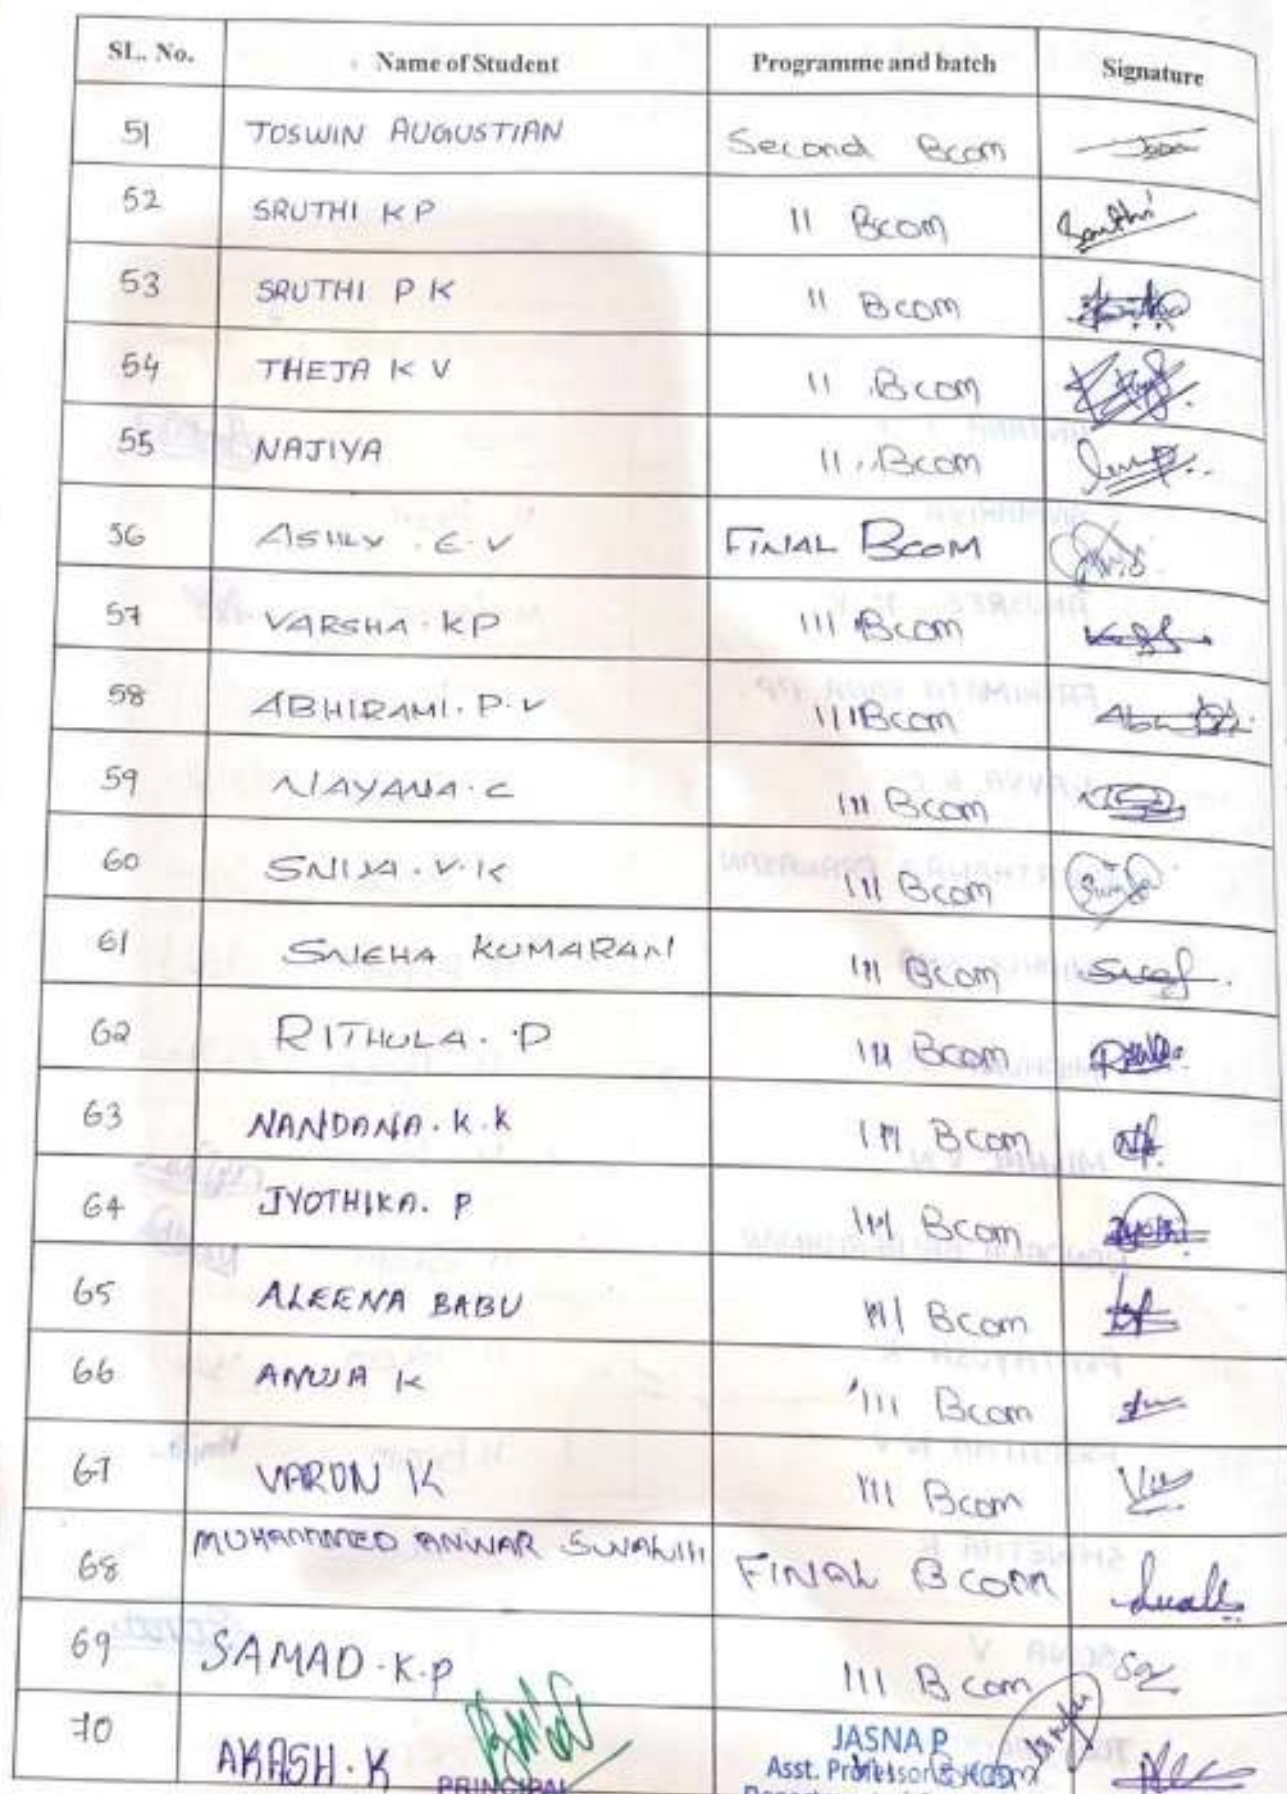 SL. No. Name of Student Programme and batch Signature
51 TOSWIN AUGUSTIAN Second Bcom
52 SRUTHI K P II Bcom
53 SRUTHI P K II Bcom
54 THEJA K V II Bcom
55 NAJIYA II Bcom
56 ASHLY . E . V FINAL BCOM
57 VARSHA . KP III Bcom
58 ABHIRAMI . P . V III Bcom
59 NAYANA . C III Bcom
60 SNIJA . V . K III Bcom
61 SNEHA KUMARAN III Bcom
62 RITHULA . P III Bcom
63 NANDANA . K . K III Bcom
64 JYOTHIKA . P III Bcom
65 ALEENA BABU III Bcom
66 K III Bcom
67 VARUN K III Bcom
68 MUHAMMED ANWAR SWALIH FINAL BCOM
69 SAMAD . K . P III Bcom
70 AKASH . K
PRINCIPAL
JASNA P
Asst. Professor & HOD